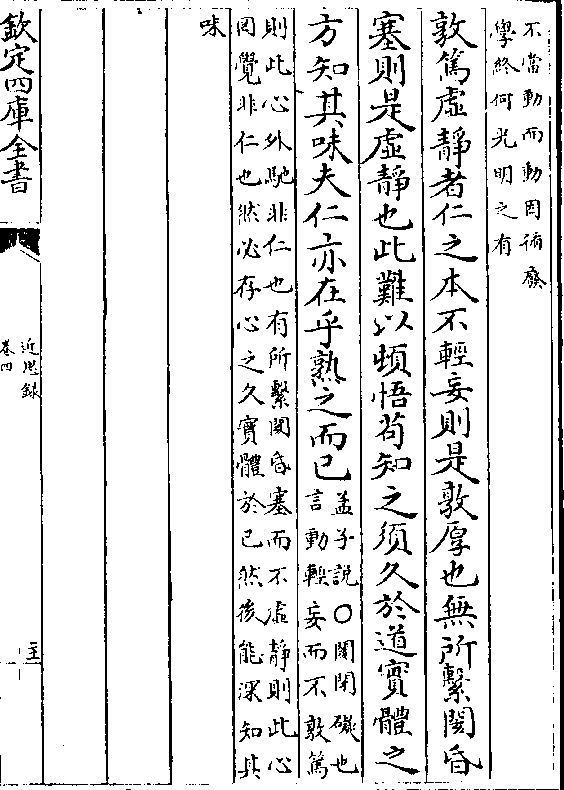 不當動而動因循廢
學終何光明之有
敦篤虛靜者仁之本不輕妄則是敦厚也無所繫閡昏
塞則是虛靜也此難以頓悟茍知之須久於道實體之
方知其味夫仁亦在乎熟之而已
孟子說〇閡閉礙也
言動輕妄而不敦篤
則此心外馳非仁也有所繫閡昏塞而不虛靜則此心
罔覺非仁也然必存心之久實體於已然後能深知其
味
欽定四庫全書
近思錄
卷四